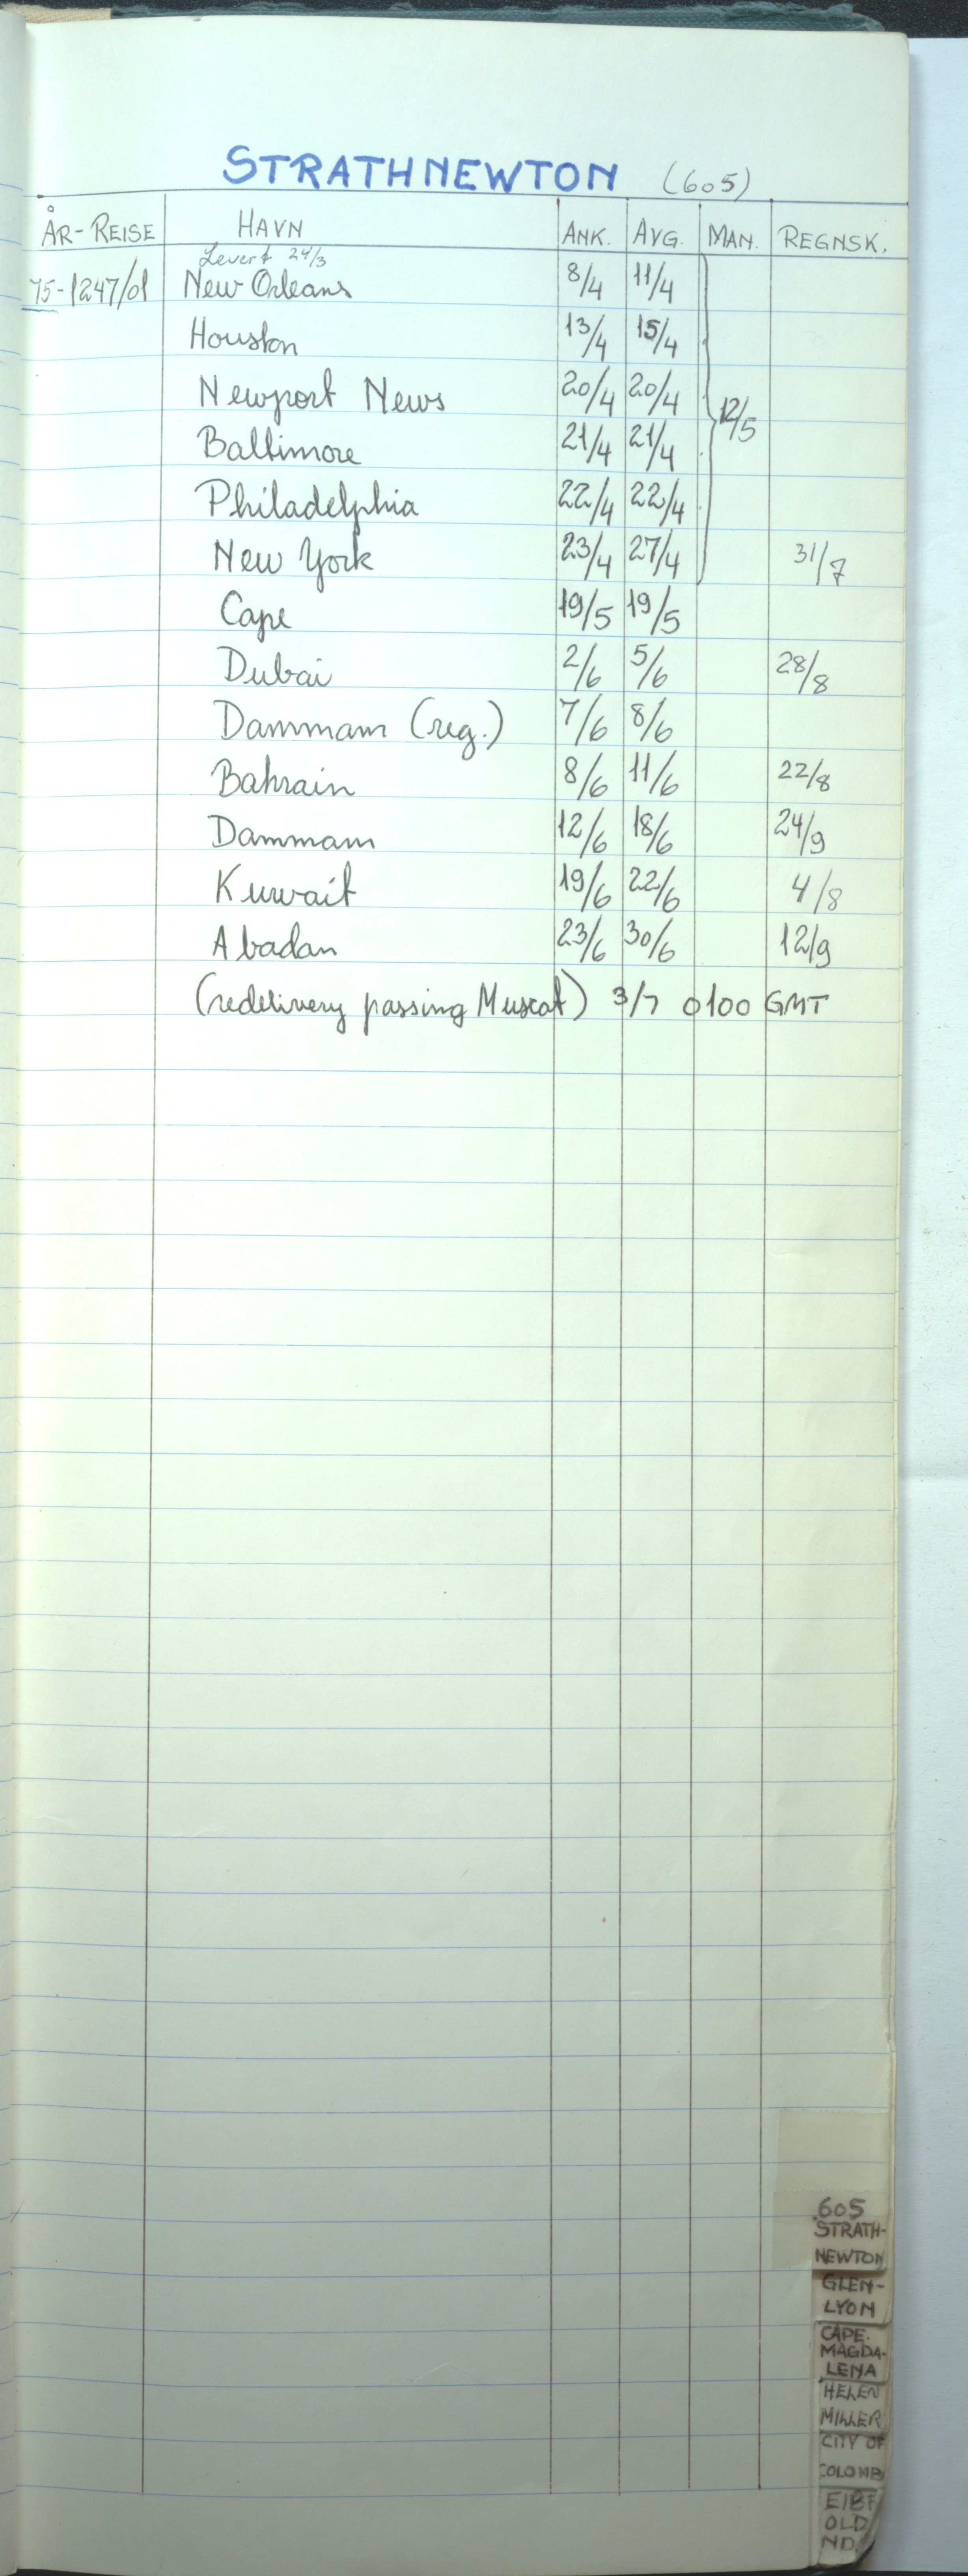 STRATHNEWTON (605)
ÅR-REISE HAVN ANK. AVG. MAN. REGNSK.
Levert 24/3
75-1247/01 New Orleans 8/4 11/4
Houston 13/4 15/4
Newport News 20/4 20/4 12/5
Baltimore 21/4 21/4
Philadelphia 22/4 22/4
New York 23/4 27/4 31/7
Cape 19/5 19/5
Dubai 2/6 5/6 28/8
Dammam (reg.) 7/6 8/6
Bahrain 8/6 11/6 22/8
Dammam 12/6 18/6 24/9
Kuwait 19/6 22/6 4/8
Abadan 23/6 30/6 12/9
(redelivery passing Muscat) 3/7 0100 GMT
605
STRATH-
NEWTON
GLEN-
LYON
CAPE
MAGDA-
LENA
HELEN
MILLER
CITY OF
COLOMB
OLD